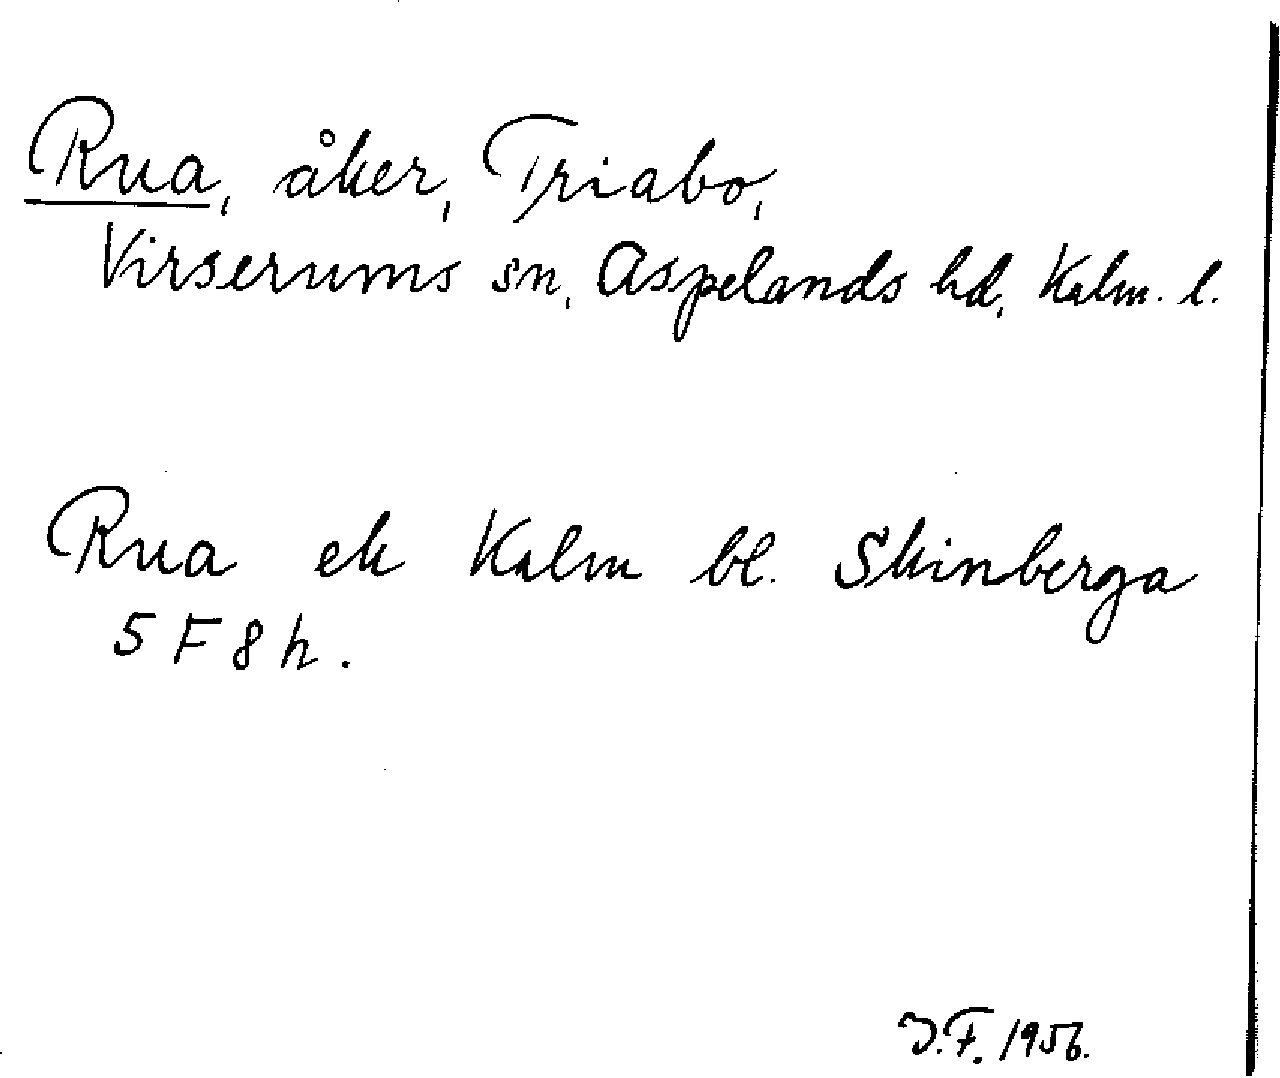 Rua, åker, Triabo,
Virserums sn, Aspelands hd, Kalm. l.
Rua ek Kalm bl. Skinberga
5 F 8 h.
J.F. 1956.